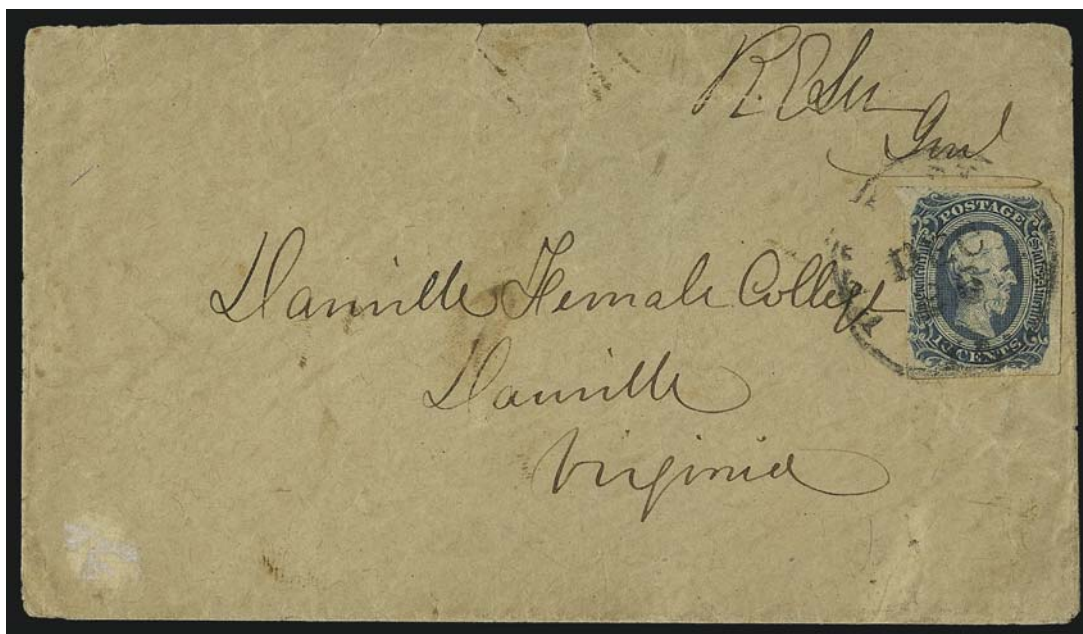 R. E Lee
Genl
POSTAGE
The Confederate States of America
CENTS
Danville Female College
Danville
Virginia